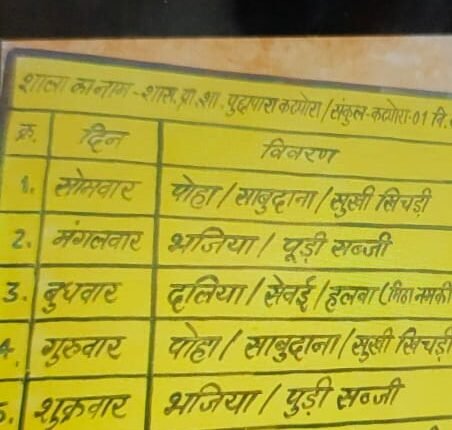 शाला का नाम - शास. प्रा. शा. पुछापारा कटघोरा / संकुल - कटघोरा-01 वि.
क्र. दिन विवरण
1. सोमवार पोहा / साबुदाना / सुखी खिचड़ी
2. मंगलवार भजिया / पूड़ी सब्जी
3. बुधवार दलिया / सेवई / हलवा (मिठा नमकी
4. गुरुवार पोहा / साबुदाना / सुखी खिचड़ी
5. शुक्रवार भजिया / पुड़ी सब्जी